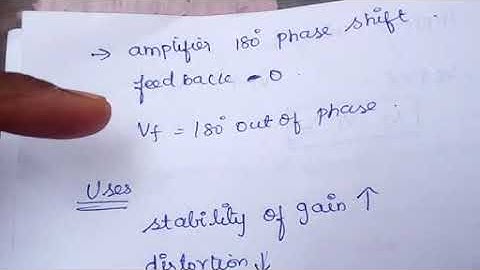 → amplifier 180° phase shift
feedback - 0.
Vf = 180° out of phase.
Uses
stability of gain ↑
distortion ↓